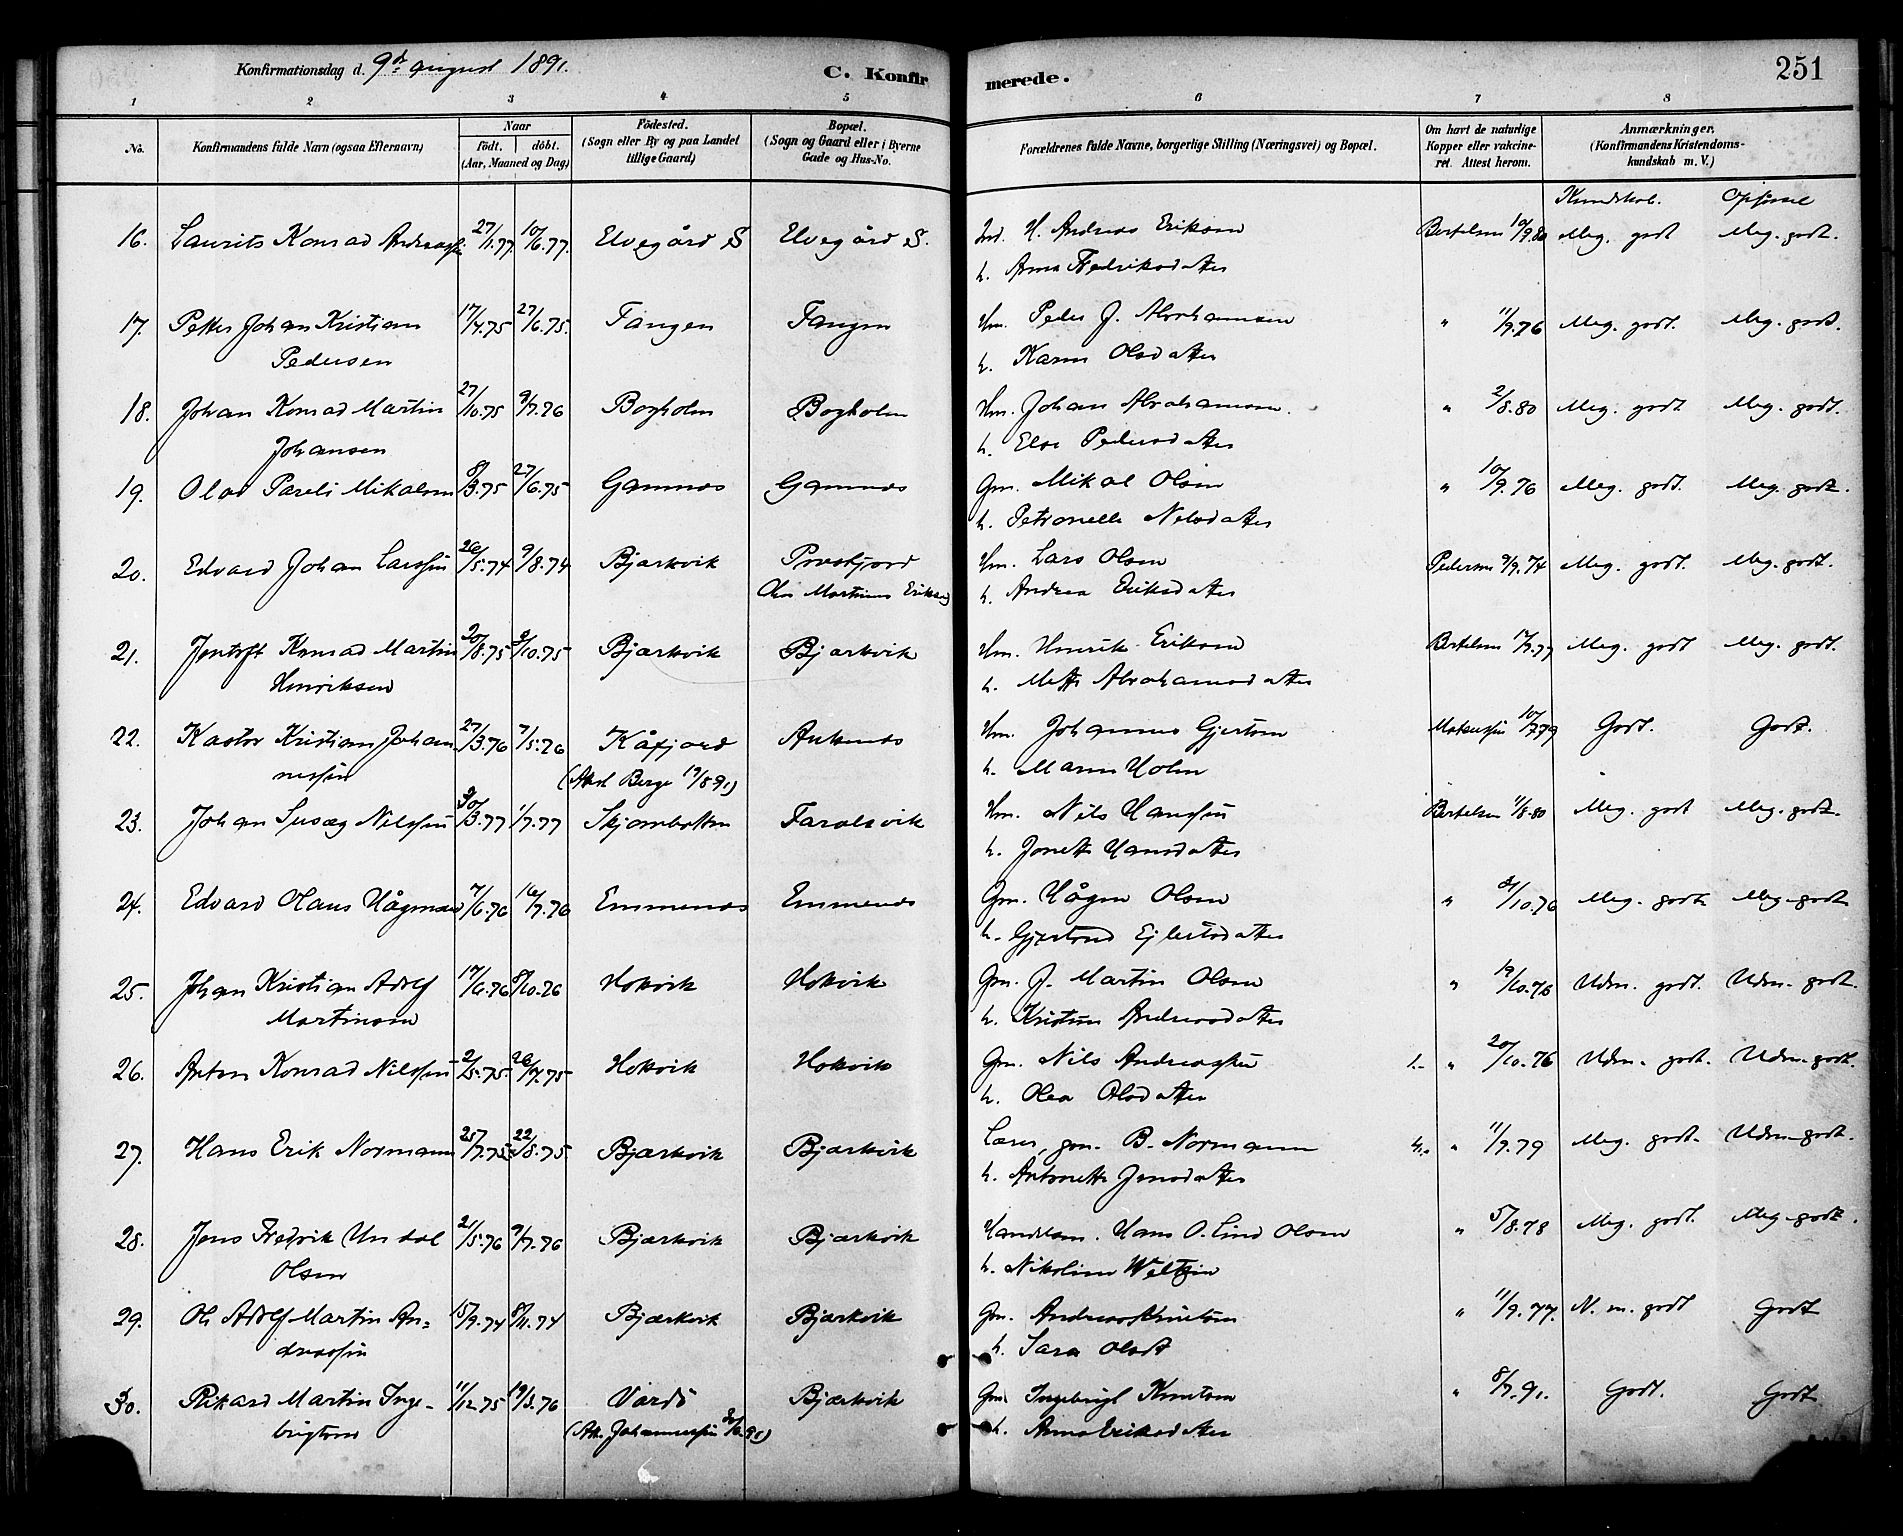 Konfirmationsdag d. 9de august 1891.
C. Konfirmerede.
251
1 2 3 4 5 6 7 8
No.
Konfirmandens fulde Navn (ogsaa Efternavn)
Naar
födt. döbt.
(Aar, Maaned og Dag)
Födested.
(Sogn eller By og paa Landet
tillige Gaard)
Bopæl.
(Sogn og Gaard eller i Byerne
Gade og Hus-No.
Forældrenes fulde Navne, borgerlige Stilling (Næringsvei) og Bopæl.
Om havt de naturlige
Kopper eller vakcine-
ret. Attest herom.
Anmærkninger.
(Konfirmandens Kristendoms-
kundskab m. V.)
Kundskab. Opförsel
16. Laurits Konrad Andreassen 27/1.77. 10/6.77. Elvegård S Elvegård S. Ind. H. Andreas Eriksen Bertelsen 10/9.80 Meg. godt Meg. godt.
h. Anna Fredriksdatter
17. Petter Johan Kristian 17/4.75 27/6.75. Tangen Tangen Hm. Peder J. Abrahamsen " 11/9.76 Meg. godt. Meg. godt.
Pedersen h. Karen Olsdatter
18. Johan Konrad Martin 27/10.75 9/7.76 Bogholm Bogholm Hm. Johan Abrahamsen. " 2/8.80 Meg. godt Meg. godt.
Johansen h. Else Pedersdatter
19. Olav Pareli Mikalsen 8/3.75 27/6.75 Gamnes Gamnes Gm. Mikal Olsen " 10/9.76 Meg. godt. Meg. godt.
h. Petronelle Nelsdatter
20. Edvard Johan Larssen 26/5.74 9/8.74 Bjærkvik Hm. Lars Olsen Pedersen 9/9.74 Meg. godt. Meg. godt.
Martinus Eriksen h. Andrea Eriksdatter
21. Jentoft Konrad Martin 20/8.75 /10.75 Bjærkvik Bjærkvik Hm. Henrik Eriksen Bertelsen Meg. godt Meg. godt.
Henriksen h. Mette Abrahamsdatter
22. Kastor Kristian Johan- 27/3.76 7/5.76 Kåfjord Ankenes Hm. Johannes Gjertsen 10/7.79 Godt. Godt.
nessen (Attest Berge 19/8 91) h. Maren Holm
23. Johan Susæg Nilssen 30/3.77 1/7.77 Skjombotten Hm. Nils Hanssen Bertelsen 11/8.80 Meg. godt Meg. godt.
h. Jonette Hansdatter
24. Edvard Olaus Hågensen 7/6.76 16/7.76 Emmenes Emmenes Gm. Hågen Olsen " /10.76 Meg. godt Meg. godt
h. Gjertrud Ejlertsdatter
25. Johan Kristian Adolf 17/6.76 8/10.76 Hokvik Hokvik Gm. J. Martin Olsen " 19/10.76 Udm. godt. Udm. godt.
Martinsen h. Kristine Andreasdatter
26. Anton Konrad Nilssen 2/5.75. 26/7.75 Hokvik Hokvik Gm. Nils Andreassen " 20/10.76 Udm. godt. Udm. godt.
h. Olea Olsdatter
27. Hans Erik Normann 25/7.75 22/8.75 Bjærkvik Bjærkvik Lærer, gm. B. Normann " 11/9.79 Meg. godt. Udm. godt.
h. Antonette Jensdatter
28. Jens Fredrik Undal 21/5.76 9/7.76 Bjærkvik Bjærkvik Handelsm. Hans O. Lind Olsen " 5/8.78 Meg. godt. Meg. godt.
Olsen h. Nikoline
29. Ole Adolf Martin An= 15/9.74 8/11.74 Bjærkvik Bjærkvik Gm. Andreas Knutsen " 11/9.77. N. m. godt Godt
dreassen h. Sara Olsdt
30. Rikard Martin Inge- 11/12.75 19/3.76 Vardö Bjærkvik Gm. Ingebrigt Knutsen " 8/7.91. Godt. Godt
brigtsen (Att. Johannessen 91) h. Anna Eriksdatter